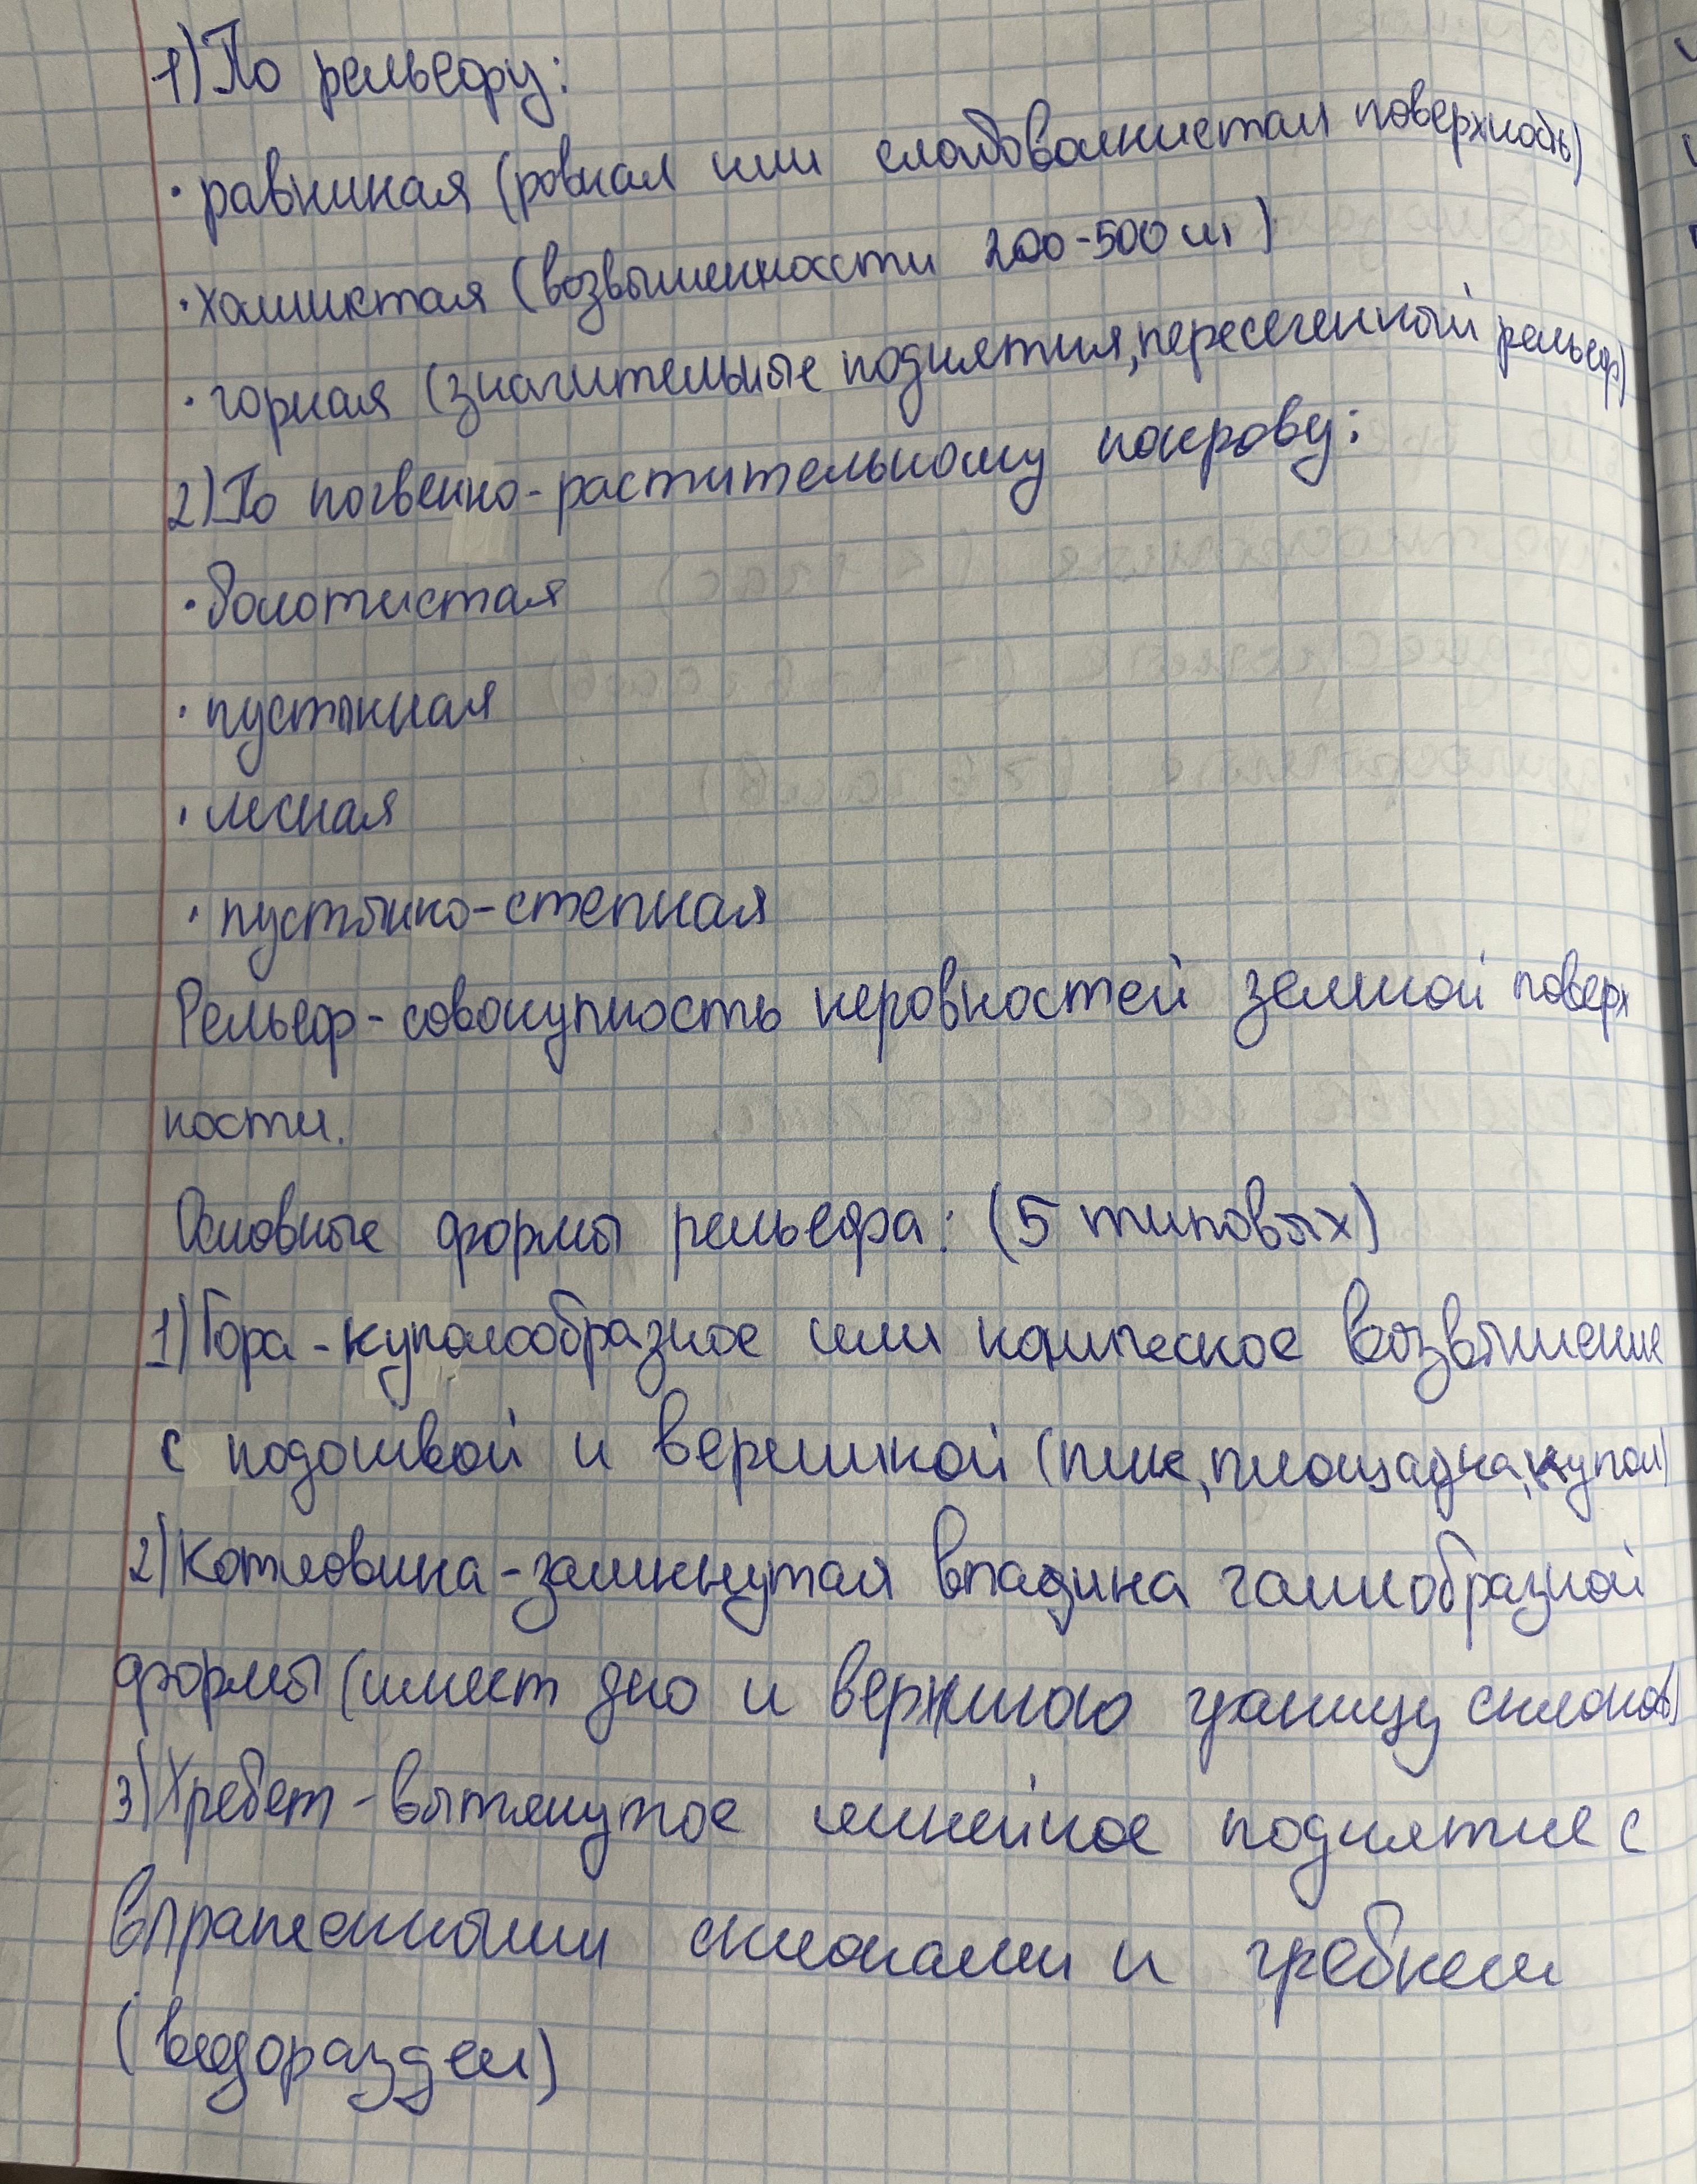 1) По рельефу:
· равниная (ровная или слабоволнистая поверхность)
· холмистая (возвышенности 200-500 м)
· горная (значительные поднятия, пересеченный рельеф)
2) По почвенно-растительному покрову:
· болотистая
· пустынная
· лесная
· пустынно-степная
Рельеф - совокупность неровностей земной поверх
ности.
Основные формы рельефа: (5 типовых)
1) Гора - куполообразное или коническое возвышение
с подошвой и вершиной (пик, площадка, купол)
2) Котловина - замкнутая впадина чашеобразной
формы (имеет дно и верхнюю границу склонов)
3) Хребет - вытянутое линейное поднятие с
выраженными склонами и гребнем
(водораздел)